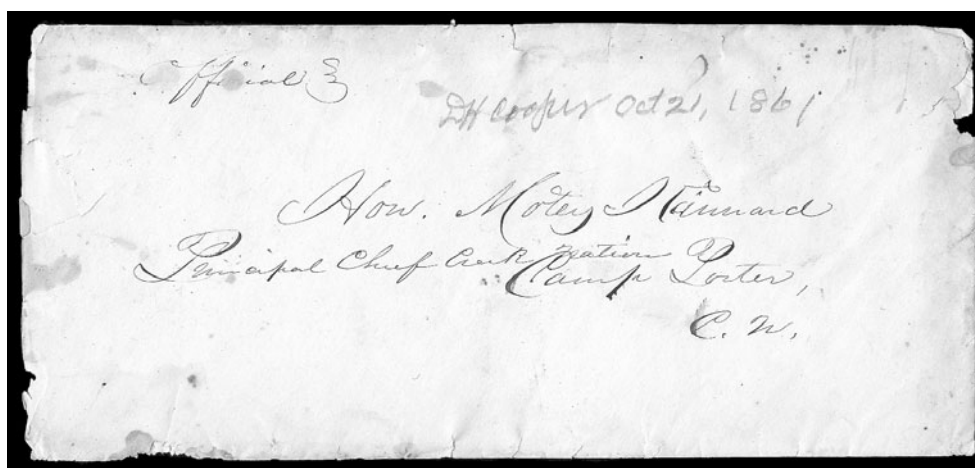 Official
DH Cooper Oct 21, 1861
Hon. Motey Kannard
Principal Chief Creek Nation
Camp Porter,
C. N.